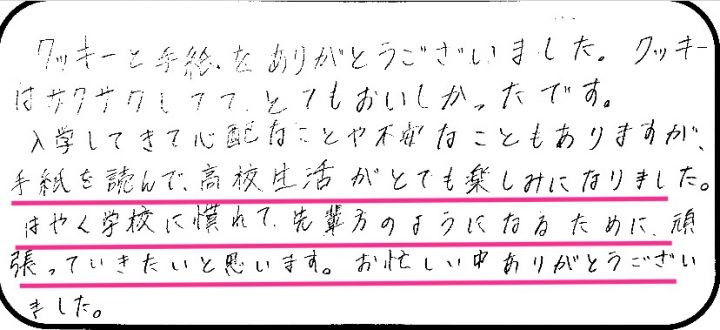 クッキーと手紙をありがとうございました。クッキー
はサクサクしてて、とてもおいしかったです。
入学してきて心配なことや不安なこともありますが、
手紙を読んで、高校生活がとても楽しみになりました。
はやく学校に慣れて、先輩方のようになるために、頑
張っていきたいと思います。お忙しい中ありがとうござい
ました。